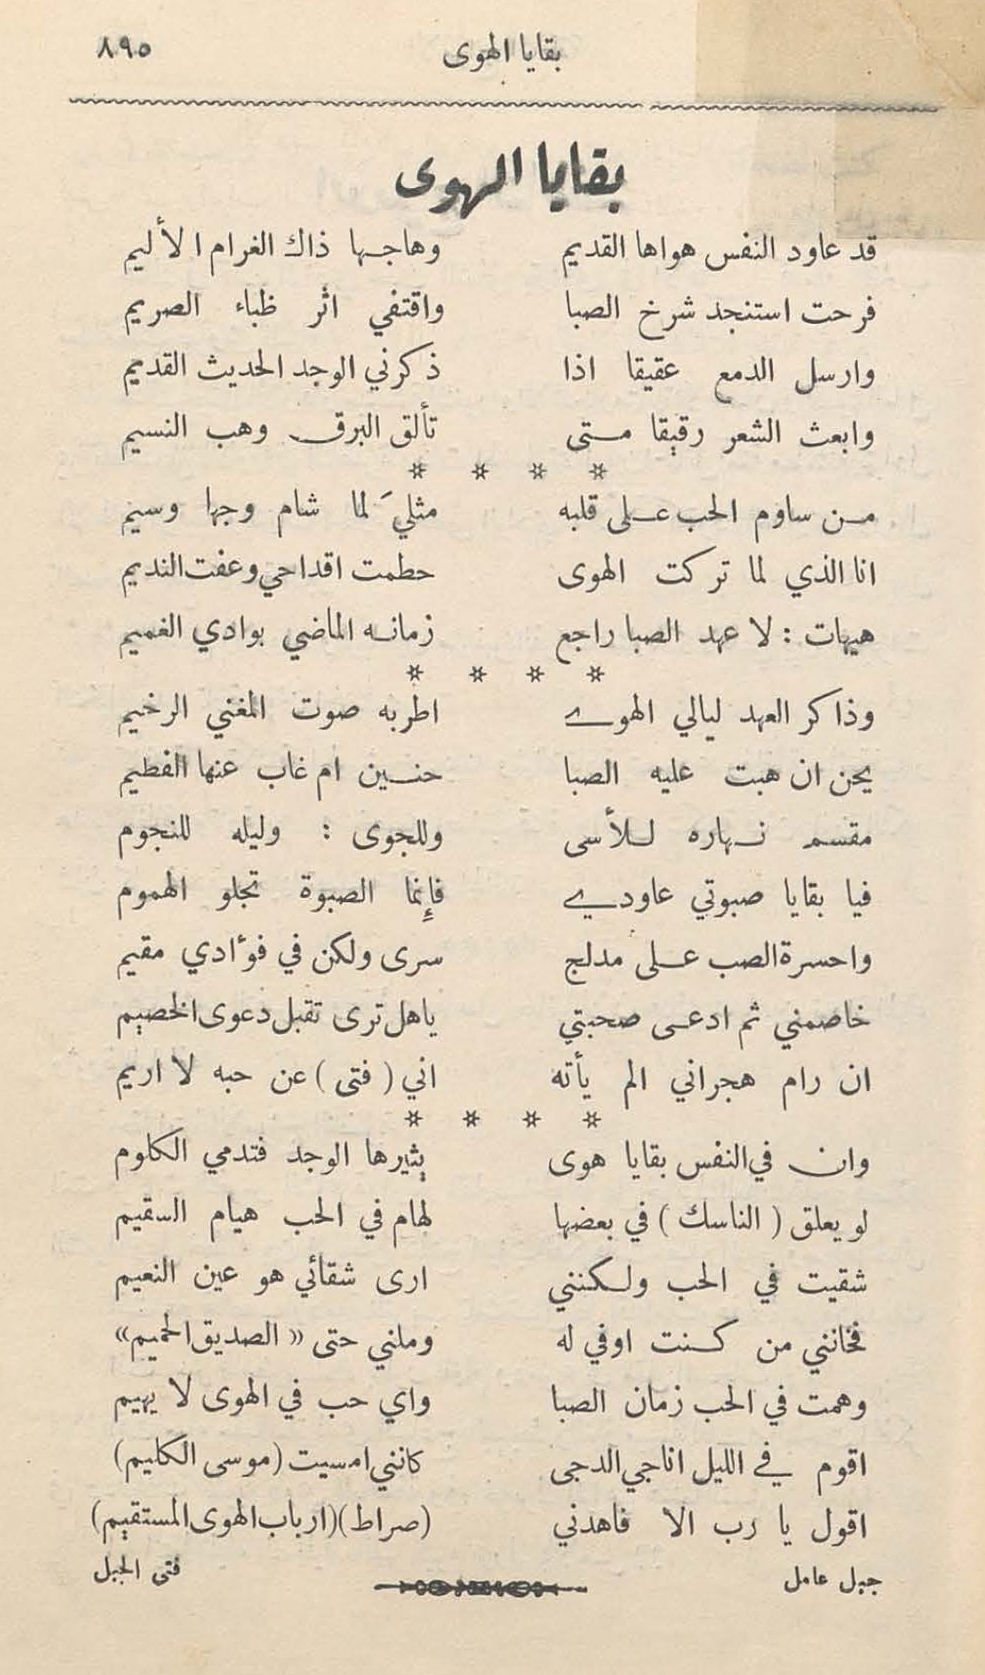 بقايا الهوى ٨٩٥
بقايا الهوى
قد عاود النفس هواها القديم وهاجها ذاك الغرام الأليم
فرحت استنجد شرخ الصبا واقتفي اثر ظباء الصريم
وارسل الدمع عقيقا اذا ذكرني الوجد الحديث القديم
وابعث الشعر رقيقا متى تألق البرق وهب النسيم
* * * *
من ساوم الحب على قلبه مثليَ لما شام وجها وسيم
انا الذي لما تركت الهوى حطمت اقداحي وعفت النديم
هيهات : لا عهد الصبا راجع زمانه الماضي بوادي الغميم
* * * *
وذاكر العهد ليالي الهوى اطربه صوت المغني الرخيم
يحن ان هبت عليه الصبا حنين ام غاب عنها الفطيم
مقسم نهاره للأسى وللجوى : وليله للنجوم
فيا بقايا صبوتي عاودي فإنما الصبوة تجلو الهموم
واحسرة الصب على مدلج سرى ولكن في فؤادي مقيم
خاصمني ثم ادعى صحبتي ياهل ترى تقبل دعوى الخصيم
ان رام هجراني الم يأته اني ( فتى ) عن حبه لا اريم
* * * *
وان في النفس بقايا هوى يثيرها الوجد فتدمي الكلوم
لو يعلق ( الناسك ) في بعضها لهام في الحب هيام السقيم
شقيت في الحب ولكنني ارى شقائي هو عين النعيم
فخانني من كنت اوفي له وملني حتى « الصديق الحميم»
وهمت في الحب زمان الصبا واي حب في الهوى لا يهيم
اقوم في الليل اناجي الدجى كانني امسيت (موسى الكليم)
اقول يا رب الا فاهدني (صراط)(ارباب الهوى المستقيم)
جبل عامل فتى الجبل